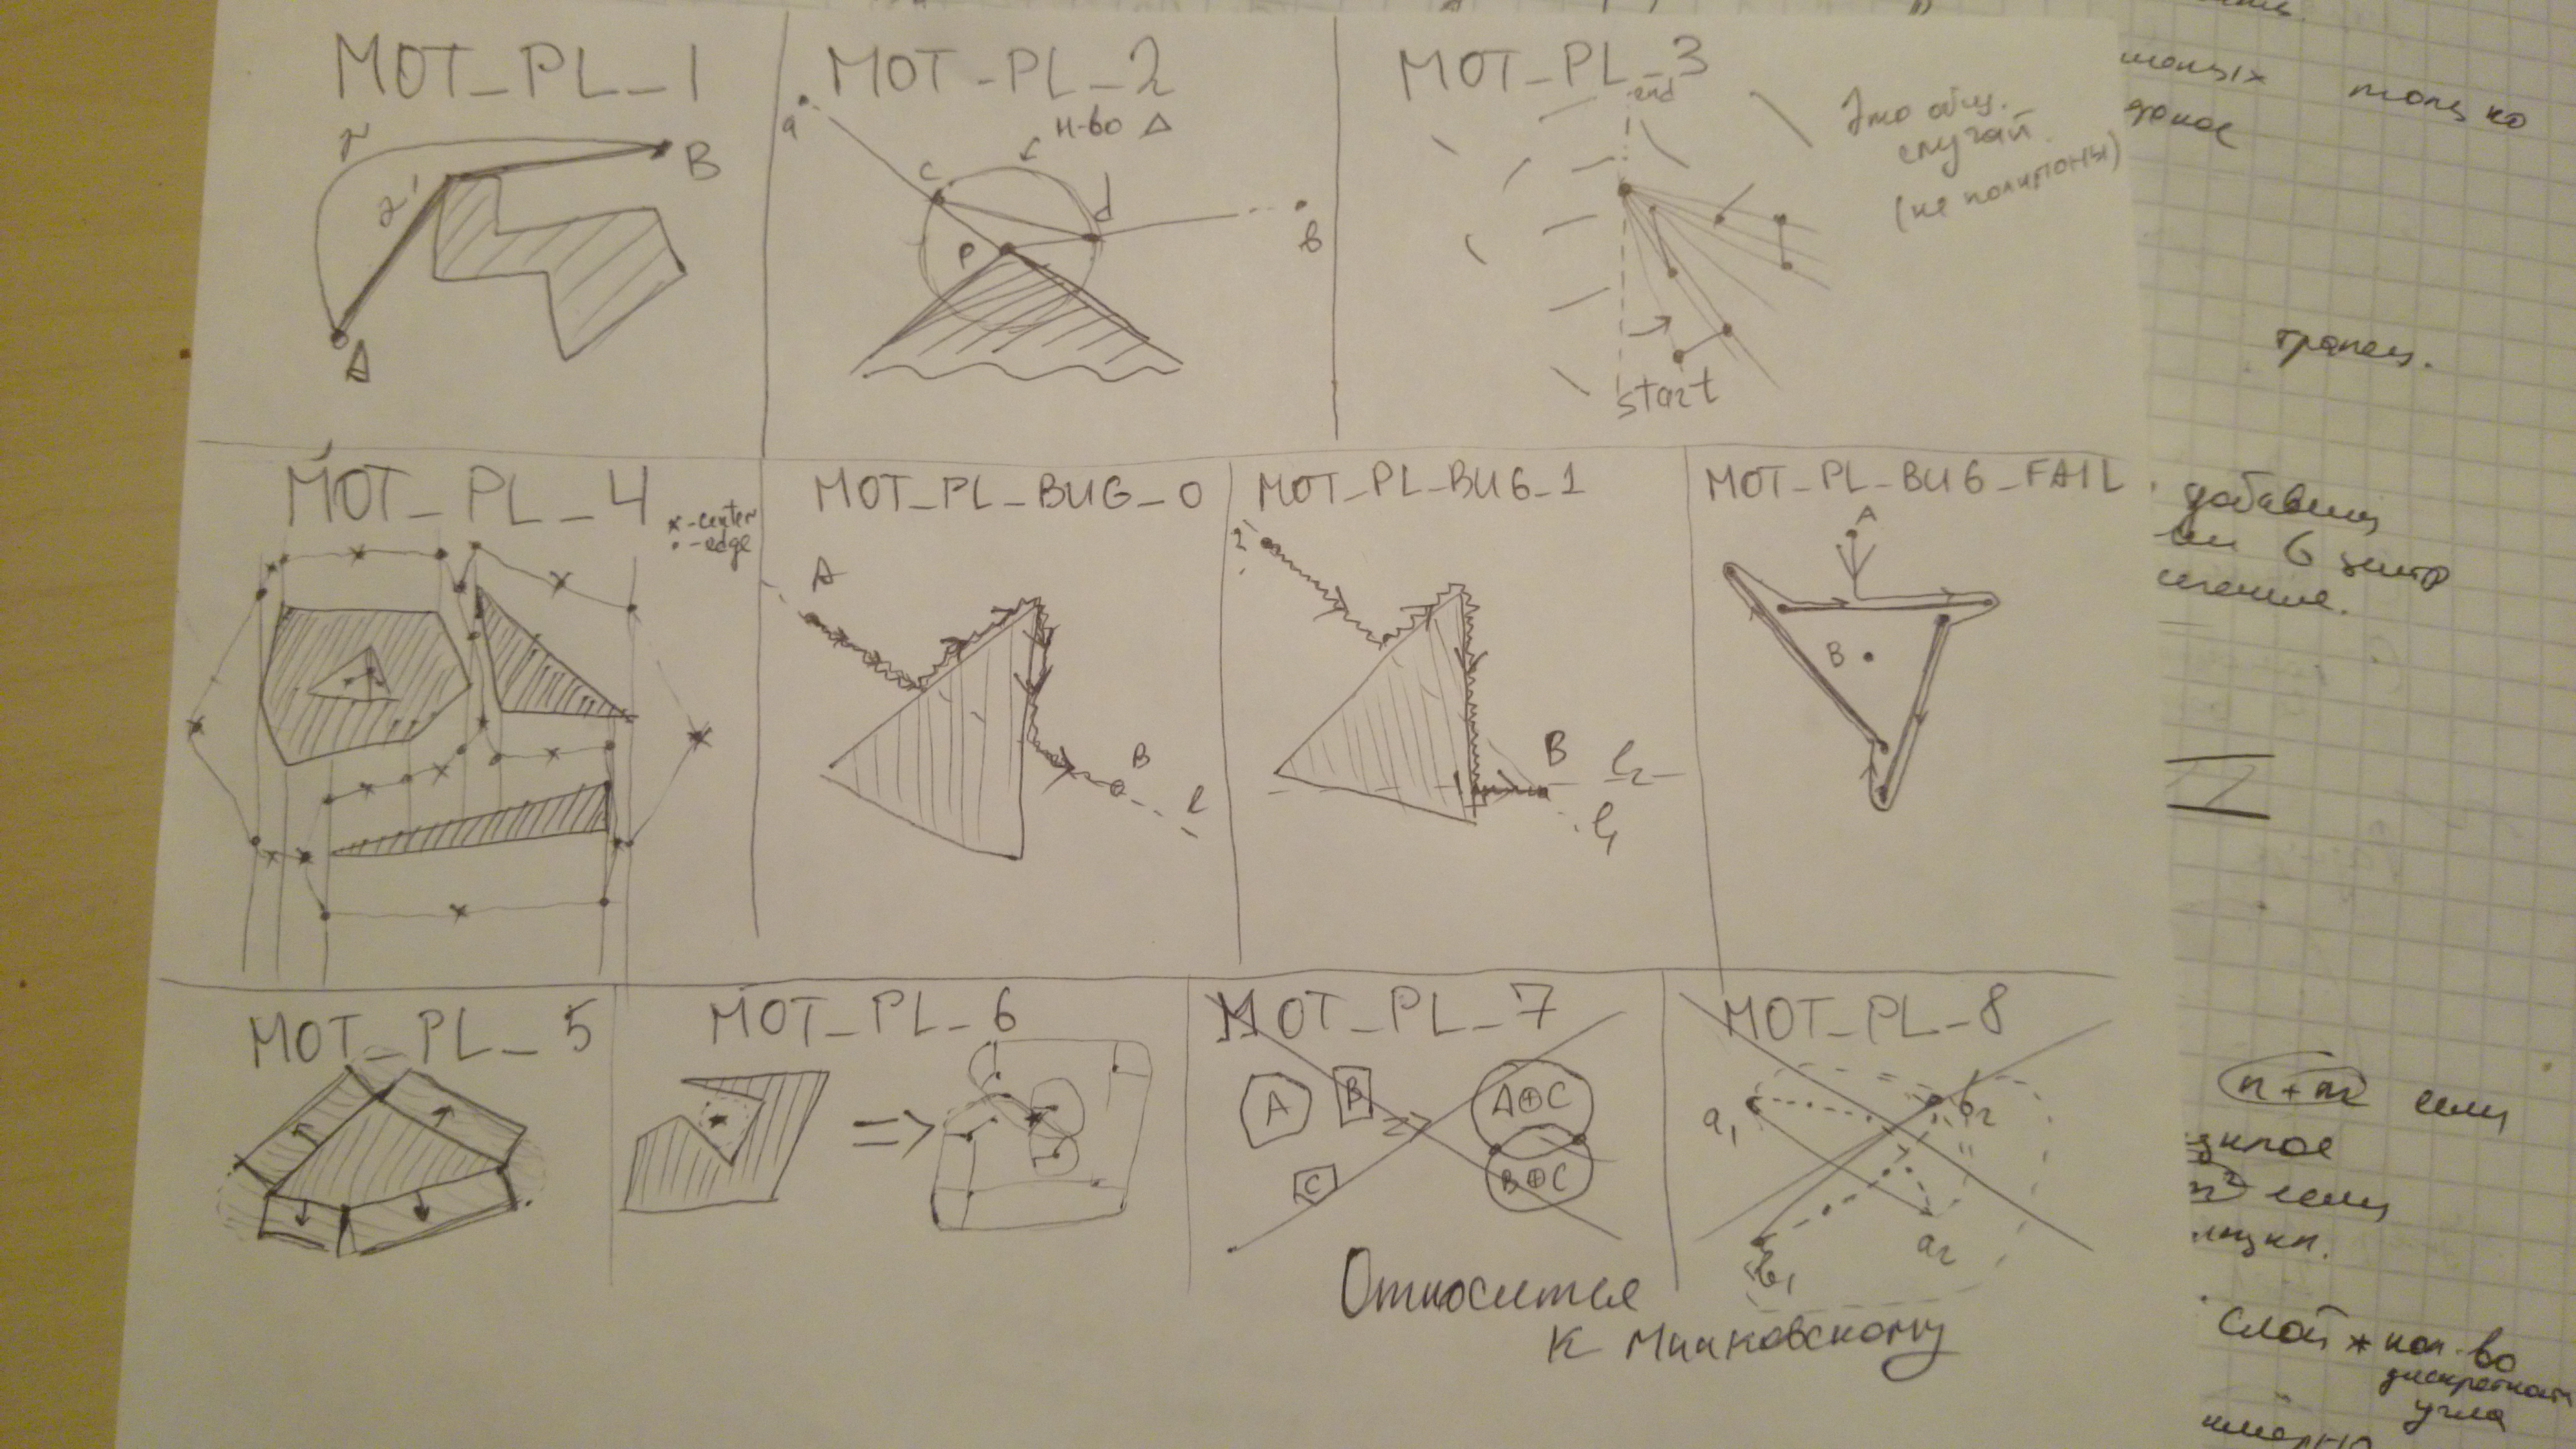 MOT_PL_1
A
B
MOT-PL_2
н-во Δ
a
c
d
p
b
MOT_PL_3
end
Это общ.
случай
(не полигоны)
start
MOT_PL_4
x-center
•-edge
MOT_PL_BUG_0
A
B
l
MOT_PL_BUG_1
B
l2
l1
MOT_PL_BUG_FAIL
A
B
MOT_PL_5
MOT_PL_6
=>
MOT_PL_7
A
B
C
=>
A⊕C
B⊕C
MOT_PL_8
a1
b2
a2
b1
Относится
к Минковскому
только
трапец.
добавим
n+m если
если
Слой * кол-во
угла